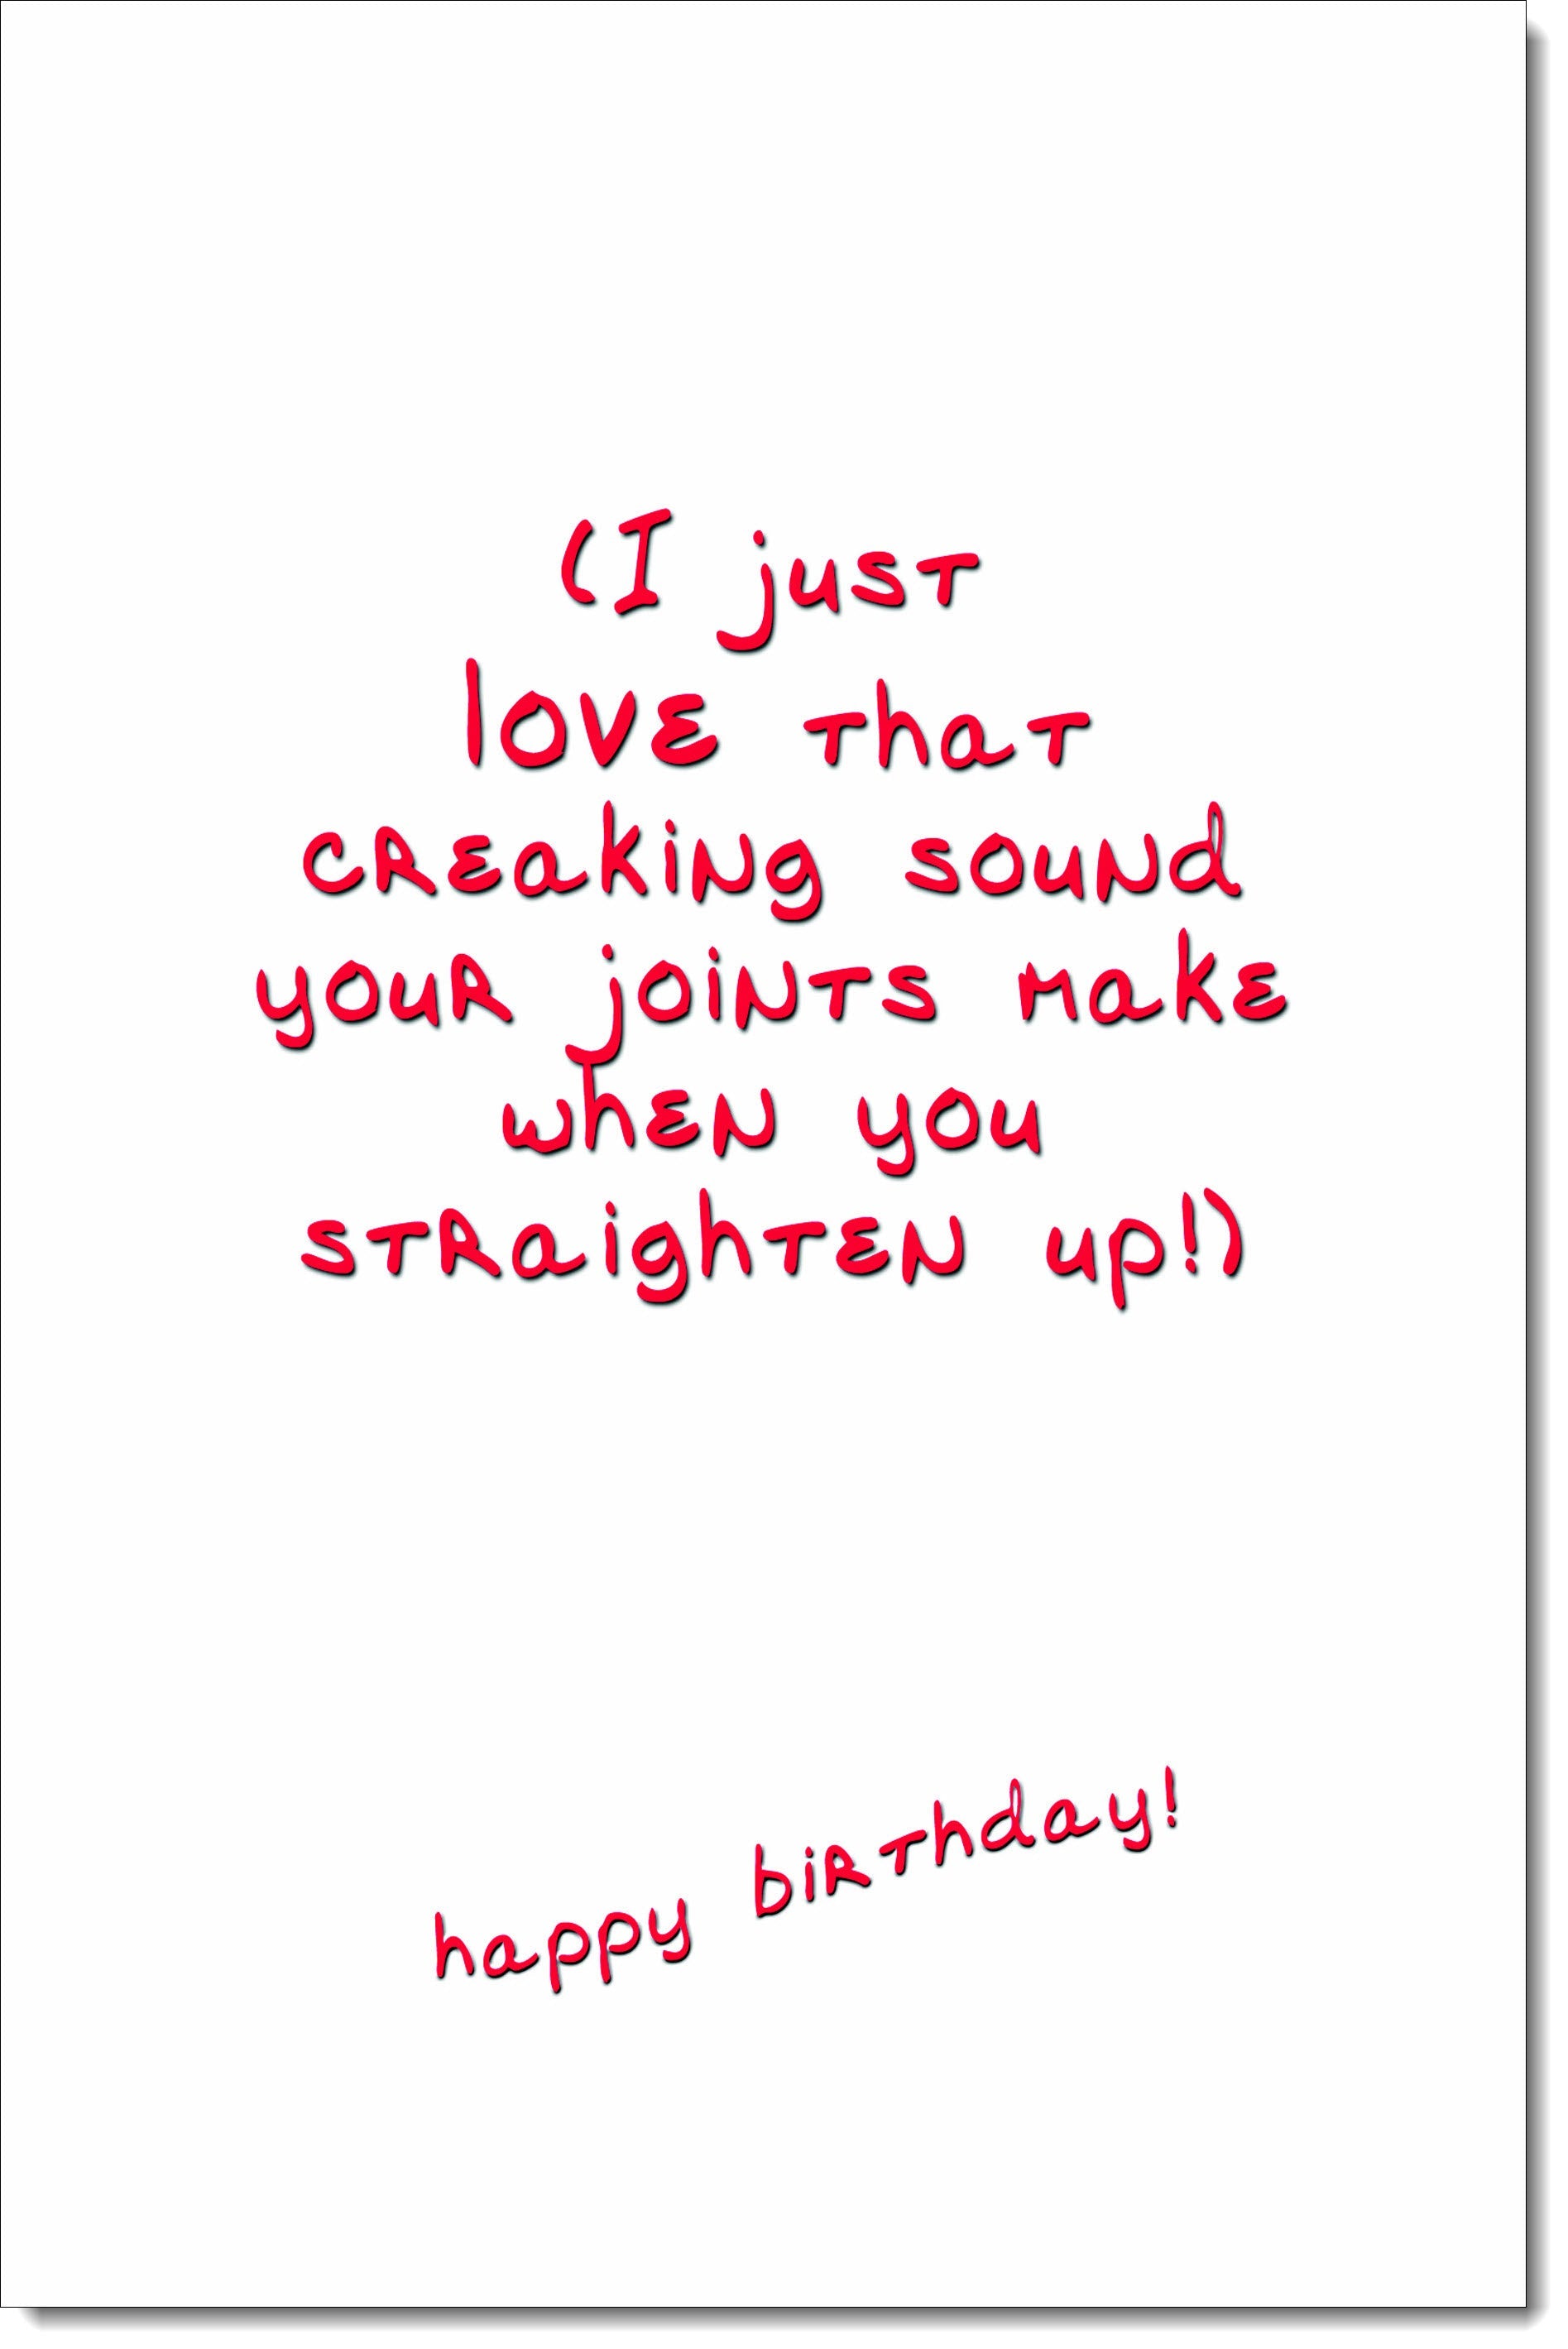 (I just
love that
creaking sound
your joints make
when you
straighten up!)
happy birthday!